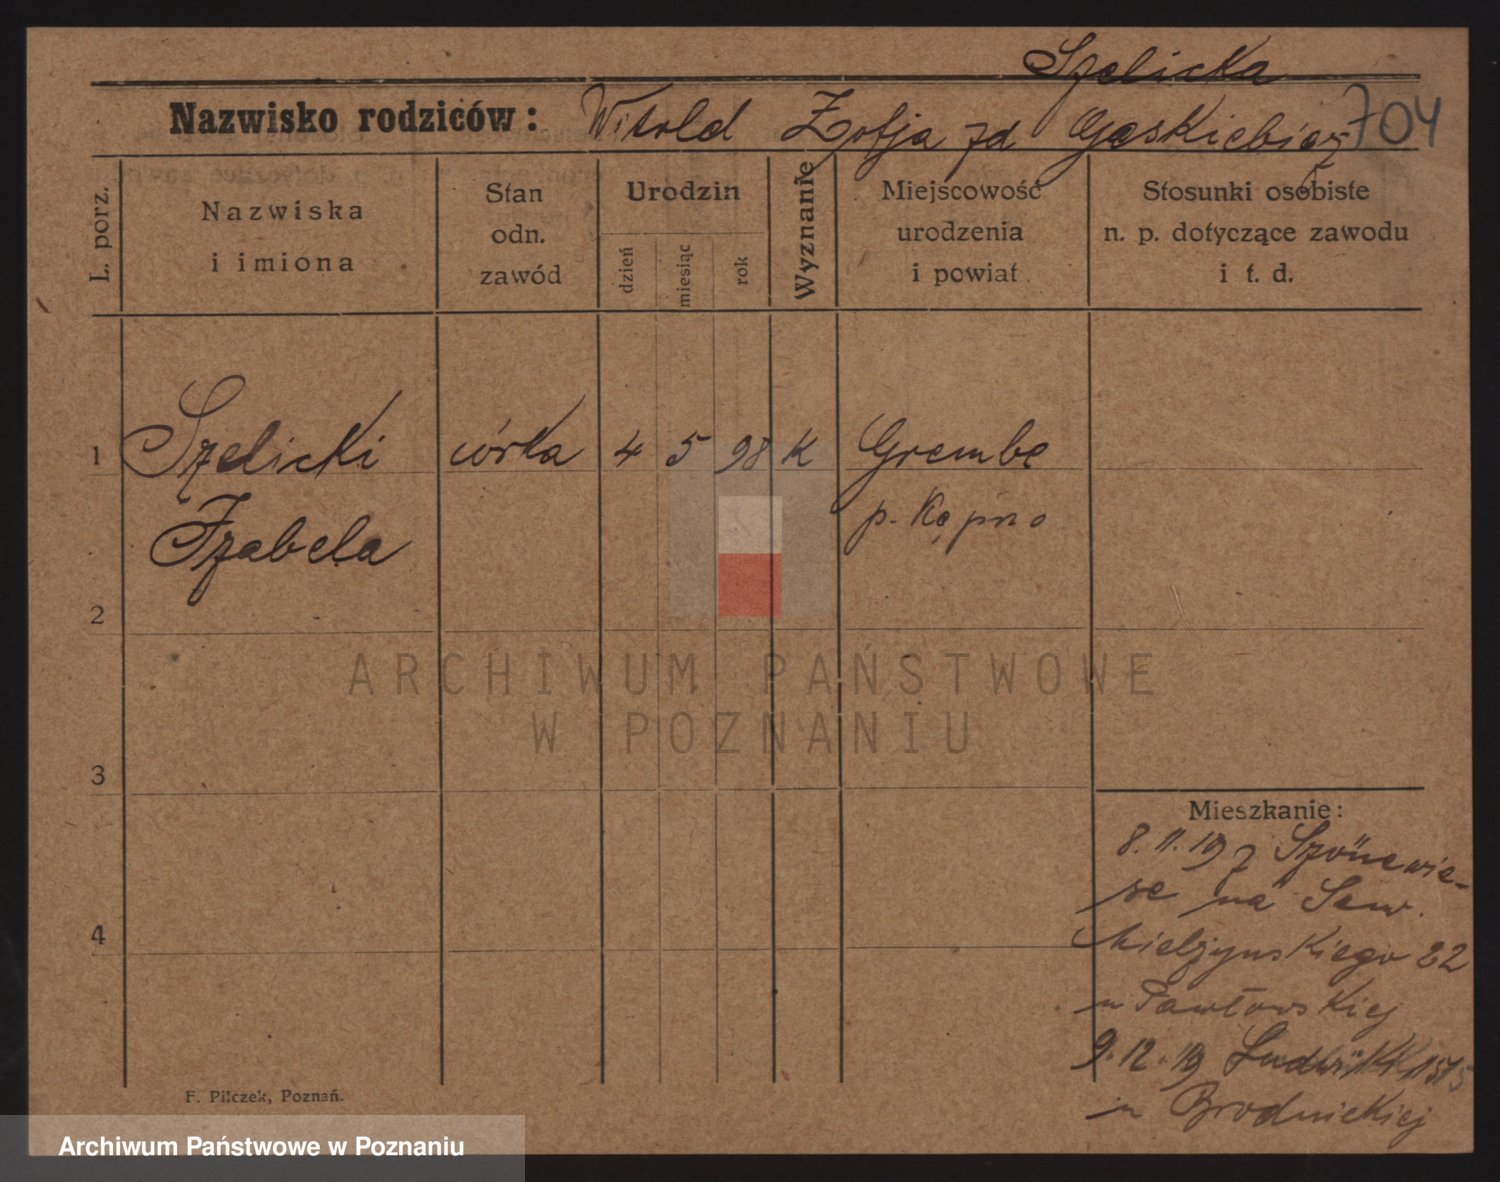 Szelicka
Nazwisko rodziców: Witold Zofja zd
704
L. porz.
Nazwiska
i imiona
Stan
odn.
zawód
Urodzin
dzień
miesiąc
rok
Wyznanie
Miejscowość
urodzenia
i powiat
Stosunki osobiste
n. p. dotyczące zawodu
i t. d.
1 Szelicki córka 4 5 98 K Grembe
p. Kępno
Izabela
2
ARCHIWUM PAŃSTWOWE
W POZNANIU
3
Mieszkanie:
8. 11. 19 z Szönewie-
se na Sew.
4
Mielżynskiego 22
u Pawłowskiej
9. 12. 19
u Brodnickiej
F. Pilczek, Poznań.
Archiwum Państwowe w Poznaniu